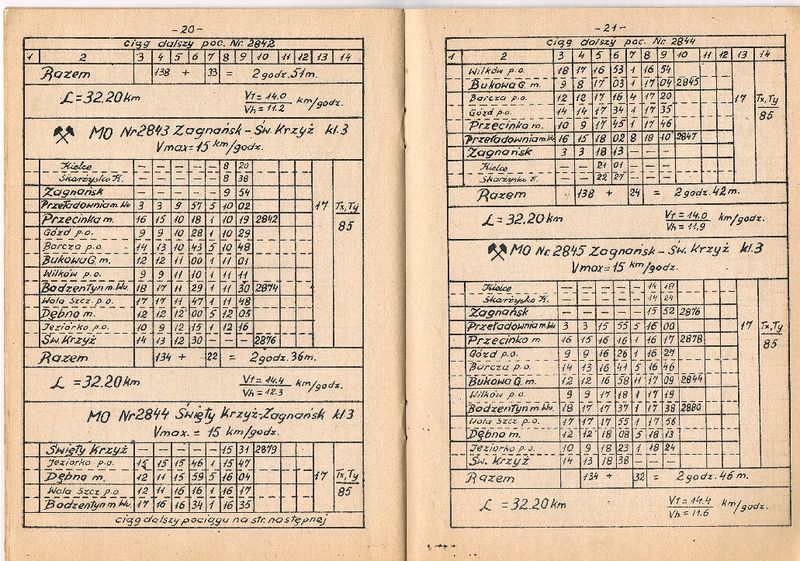 -20-
ciąg dalszy poc. Nr 2842
1 2 3 4 5 6 7 8 9 10 11 12 13 14
Razem 138 + 33 = 2 godz. 51 m.
L = 32.20 km Vt = 14.0 km/godz.
Vh = 11.2
MO Nr 2843 Zagnańsk - Św. Krzyż kl. 3
Vmax = 15 km/godz.
Kielce — — — — — 8 20
Skarżysko K. — — — — — 8 38
Zagnańsk — — — — — 9 54
Przeładownia m. Wu 3 3 9 57 5 10 02 17 Tx, Ty
Przecinka m. 16 15 10 18 1 10 19 2842 85
Gózd p.o. 9 9 10 28 1 10 29
Barcza p.o. 14 13 10 43 5 10 48
Bukowa G. m. 12 12 11 00 1 11 01
Wilków p.o. 9 9 11 10 1 11 11
Bodzentyn m. Wu. 18 17 11 29 1 11 30 2874
Wola Szcz. p.o. 17 17 11 47 1 11 48
Dębno m. 12 12 12 00 5 12 05
Jeziórko p.o. 10 9 12 15 1 12 16
Św. Krzyż 14 13 12 30 — — — 2876
Razem 134 + 22 = 2 godz. 36 m.
L = 32.20 km Vt = 14.4 km/godz.
Vh = 12.3
MO Nr 2844 Święty Krzyż-Zagnańsk kl 3
Vmax. = 15 km/godz.
Święty Krzyż — — — — — 15 31 2879
Jeziorko p.o. 15 15 15 46 1 15 47
Dębno m. 12 11 15 59 5 16 04 17 Tx, Ty
Wola Szcz. p.o. 12 11 16 16 1 16 17 85
Bodzentyn m. Wu 17 16 16 34 1 16 35
ciąg dalszy pociągu na str. następnej
-21-
ciąg dalszy poc. Nr 2844
1 2 3 4 5 6 7 8 9 10 11 12 13 14
Wilków p.o. 18 17 16 53 1 16 54
Bukowa G. m. 9 8 17 03 1 17 04 2845
Barcza p.o. 12 12 17 16 4 17 20 17 Tx, Ty
Gózd p.o. 14 14 17 34 1 17 35 85
Przecinka m. 10 9 17 45 1 17 46
Przeładownia m. Wu 16 15 18 02 8 18 10 2847
Zagnańsk 3 3 18 13 — — —
Kielce — — 21 01 — — —
Skarżysko K. — — 22 27 — — —
Razem 138 + 24 = 2 godz. 42 m.
L = 32.20 km Vt = 14.0 km/godz.
Vh = 11.9
MO Nr 2845 Zagnańsk - Św. Krzyż kl. 3
Vmax = 15 km/godz.
Kielce — — — — — 14 18
Skarżysko K. — — — — — 14 24
Zagnańsk — — — — — 15 52 2876
Przeładownia m. Wu. 3 3 15 55 5 16 00 17 Tx, Ty
Przecinka m. 16 15 16 16 1 16 17 2878 85
Gózd p.o. 9 9 16 26 1 16 27
Barcza p.o. 14 13 16 41 5 16 46
Bukowa G. m. 12 12 16 58 11 17 09 2844
Wilków p.o. 9 9 17 18 1 17 19
Bodzentyn m. Wu. 18 17 17 37 1 17 38 2880
Wola Szcz p.o. 17 17 17 55 1 17 56
Dębno m. 12 12 18 08 5 18 13
Jeziorko p.o. 10 9 18 23 1 18 24
Św. Krzyż 14 13 18 38 — — —
Razem 134 + 32 = 2 godz. 46 m.
L = 32.20 km Vt = 14.4 km/godz.
Vh = 11.6